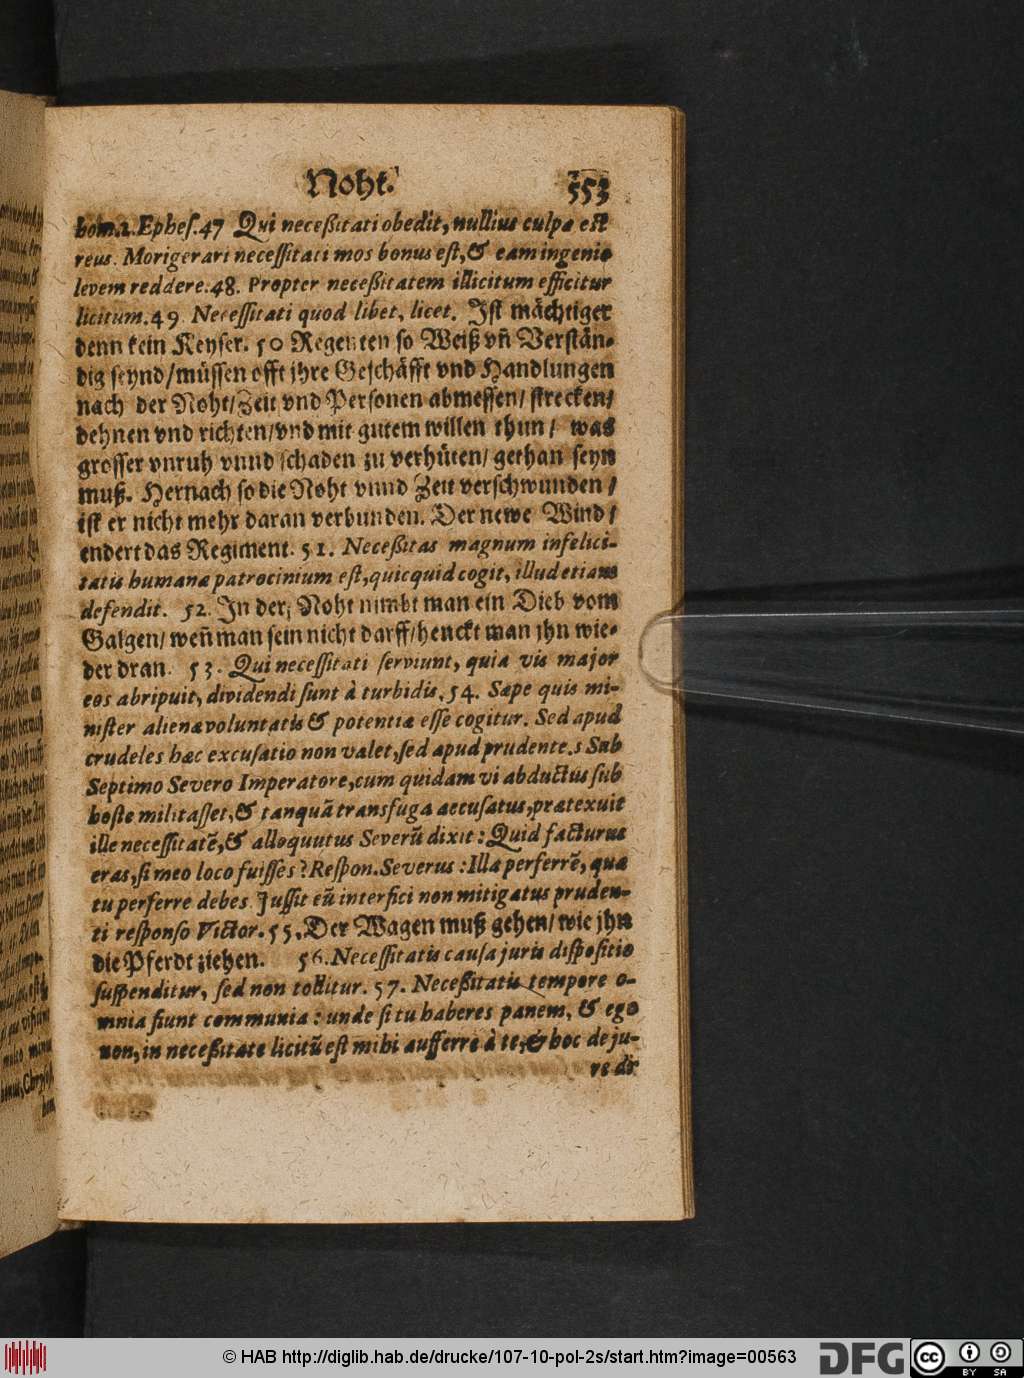 Noht. 553
hom. 2. Ephes. 47 Qui neceßitati obedit, nullius culpæ est
reus. Morigerari necessitati mos bonus est, & eam ingenio
levem reddere. 48. Propter neceßitatem illicitum efficitur
licitum. 49. Necessitati quod libet, licet. Ist mächtiger
denn kein Keyser. 50 Regenten so Weiß vn̄ Verstän-
dig seynd/müssen offt jhre Geschäfft vnd Handlungen
nach der Noht/Zeit vnd Personen abmessen/ strecken/
dehnen vnd richten/vnd mit gutem willen thun/ was
grosser vnruh vnnd schaden zu verhüten/ gethan seyn
muß. Hernach so die Noht vnnd Zeit verschwunden/
ist er nicht mehr daran verbunden. Der newe Wind/
endert das Regiment. 51. Neceßitas magnum infelici-
tatis humanæ patrocinium est, quicquid cogit, illud etiam
defendit. 52. In der Noht nimbt man ein Dieb vom
Galgen/ weñ man sein nicht darff/henckt man jhn wie-
der dran. 53. Qui necessitati serviunt, quia vis major
eos abripuit, dividendi sunt à turbidis. 54. Sæpe quis mi-
nister alienæ voluntatis & potentiæ esse cogitur. Sed apud
crudeles hæc excusatio non valet, sed apud prudentes Sub
Septimo Severo Imperatore, cum quidam vi abductus sub
hoste militasset, & tanquã transfuga accusatus, prætexuit
ille necessitatē, & alloquutus Severũ dixit: Quid facturus
eras, si meo loco fuisses? Respon. Severus: Illa perferrē, quæ
tu perferre debes. Jussit eũ interfici non mitigatus pruden-
ti responso Victor. 55. Der Wagen muß gehen/wie jhn
die Pferdt ziehen. 56. Necessitatis causa juris dispositio
suspenditur, sed non tollitur. 57. Neceßitatis tempore o-
mnia fiunt communia: unde si tu haberes panem, & ego
non, in neceßitate licitũ est mihi aufferre à te, & hoc de ju-
re di-
© HAB http://diglib.hab.de/drucke/107-10-pol-2s/start.htm?image=00563
DFG
cc BY SA